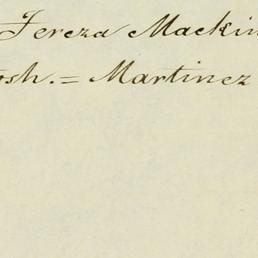 Tereza Mackin
osh. = Martinez